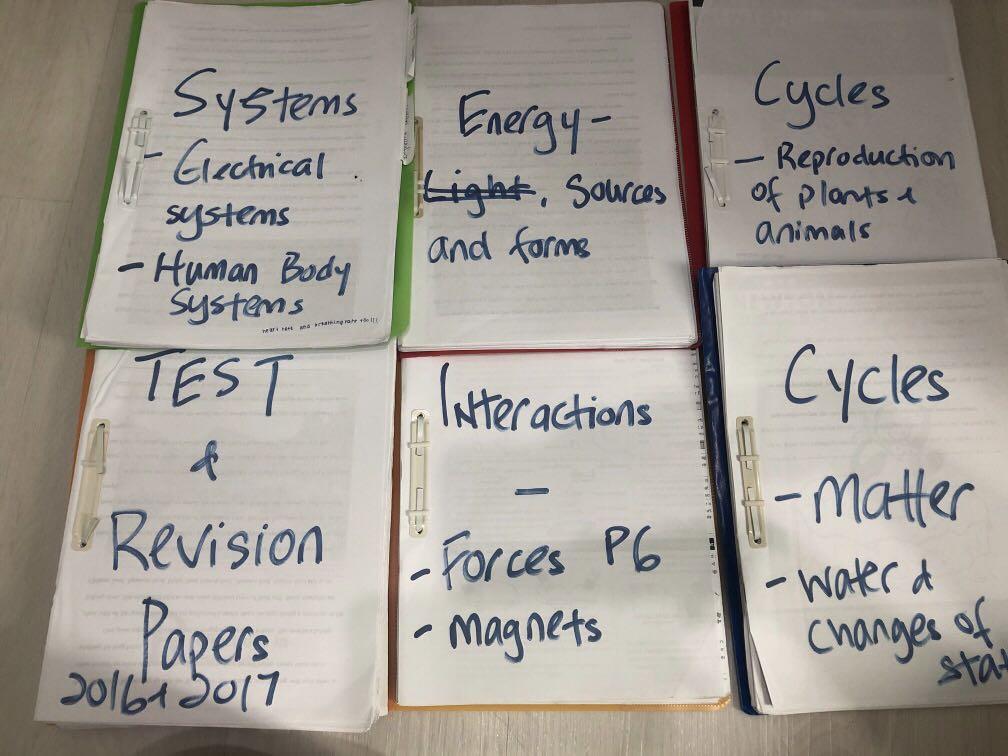 Systems
- Electrical
systems
- Human Body
Systems
heart rate and breathing rate too!!!
Energy-
Light, Sources
and forms
Cycles
- Reproduction
of plants &
animals
TEST
&
Revision
Papers
2016 & 2017
Interactions
-
- Forces P6
- Magnets
Cycles
- Matter
- Water &
changes of